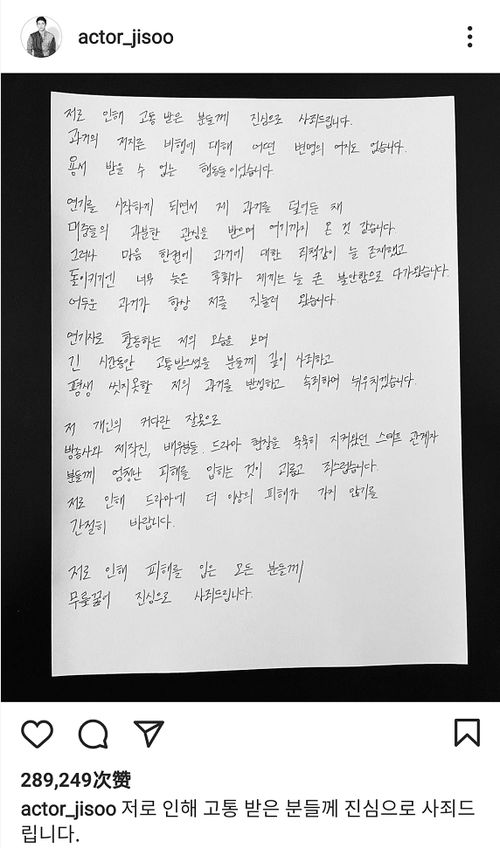 actor_jisoo
저로 인해 고통 받은 분들께 진심으로 사죄드립니다.
과거의 저지른 비행에 대해 어떤 변명의 여지도 없습니다.
용서 받을 수 없는 행동들이었습니다.
연기를 시작하게 되면서 제 과거를 덮어둔 채
대중들의 과분한 관심을 받으며 여기까지 온 것 같습니다.
그러나 마음 한켠에 과거에 대한 죄책감이 늘 존재했고
돌이키기엔 너무 늦은 후회가 제게는 늘 큰 불안함으로 다가왔습니다.
어두운 과거가 항상 저를 짓눌러 왔습니다.
연기자로 활동하는 저의 모습을 보며
긴 시간동안 고통 받으셨을 분들께 깊이 사죄하고
평생 씻지못할 저의 과거를 반성하고 속죄하며 뉘우치겠습니다.
저 개인의 커다란 잘못으로
방송사와 제작진, 배우분들, 드라마 현장을 묵묵히 지켜왔던 스태프 관계자
분들께 엄청난 피해를 입히는 것이 괴롭고 죄스럽습니다.
저로 인해 드라마에 더 이상의 피해가 가지 않기를
간절히 바랍니다.
저로 인해 피해를 입은 모든 분들께
무릎꿇어 진심으로 사죄드립니다.
289,249次赞
actor_jisoo 저로 인해 고통 받은 분들께 진심으로 사죄드
립니다.